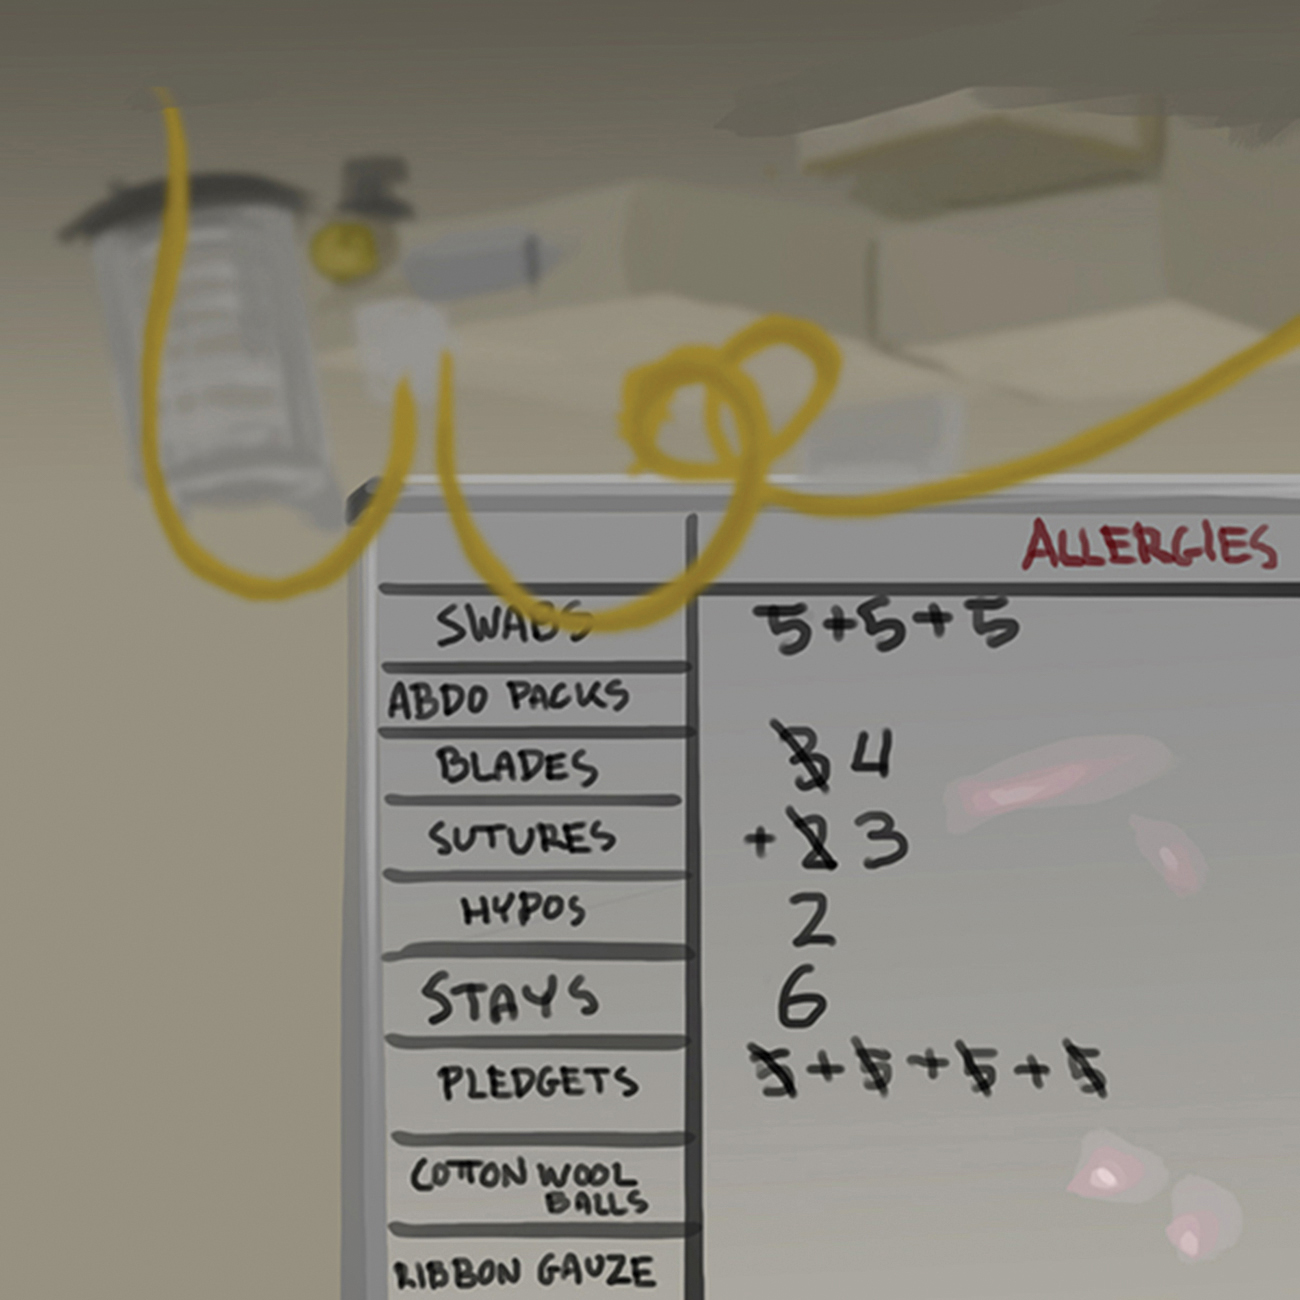 ALLERGIES
SWABS 5+5+5
ABDO PACKS
BLADES 3 4
SUTURES + 2 3
HYPOS 2
STAYS 6
PLEDGETS 5+5+5+5
COTTON WOOL
BALLS
RIBBON GAUZE